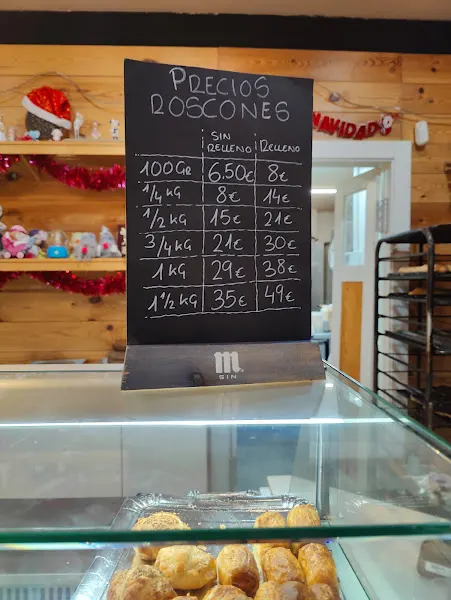 PRECIOS
ROSCONES
SIN RELLENO RELLENO
100GR 6.50€ 8€
1/4 KG 8€ 14€
1/2 KG 15€ 21€
3/4 KG 21€ 30€
1 KG 29€ 38€
1 1/2 KG 35€ 49€
NAVIDAD
m
SIN